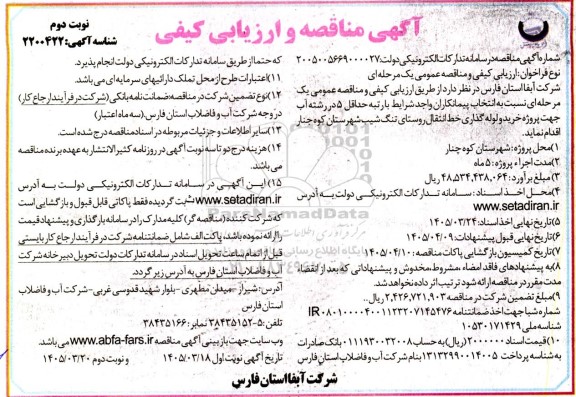 آگهی مناقصه و ارزیابی کیفی
نوبت دوم
شناسه آگهی: ۲۲۰۰۴۲۲
شماره آگهی مناقصه در سامانه تدارکات الکترونیکی دولت: ۲۰۰۵۰۰۵۶۶۹۰۰۰۰۲۷
نوع فراخوان: ارزیابی کیفی و مناقصه عمومی یک مرحله ای
شرکت آبفا استان فارس در نظر دارد از طریق ارزیابی کیفی و مناقصه عمومی یک
مرحله ای نسبت به انتخاب پیمانکاران واجد شرایط با رتبه حداقل ۵ در رشته آب
جهت پروژه خرید و لوله گذاری خط انتقال روستای تنگ شیب شهرستان کوه چنار
اقدام نماید.
۱) محل پروژه: شهرستان کوه چنار
۲) مدت اجراء پروژه: ۵ ماه
۳) مبلغ برآورد: ۴۸,۵۳۴,۴۳۸,۰۶۴ ریال
۴) محل اخذ اسناد: سامانه تدارکات الکترونیکی دولت به آدرس
www.setadiran.ir
۵) تاریخ نهایی اخذ اسناد: ۱۴۰۵/۰۳/۲۴
۶) تاریخ نهایی قبول پیشنهادات: ۱۴۰۵/۰۴/۰۹
۷) تاریخ کمیسیون بازگشایی پاکات مناقصه: ۱۴۰۵/۰۴/۱۰
۸) به پیشنهادهای فاقد امضاء، مشروط، مخدوش و پیشنهاداتی که بعد از انقضاء
مدت مقرر در مناقصه ارائه شود ترتیب اثر داده نخواهد شد.
۹) مبلغ تضمین شرکت در مناقصه: ۲,۴۲۶,۷۲۱,۹۰۳ ریال..
شماره شبا جهت اخذ ضمانتنامه IR۰۸۰۱۰۰۰۰۴۰۰۱۱۲۳۲۰۷۱۴۵۴۷۶
شناسه ملی ۱۰۵۳۰۱۷۱۴۲۹
۱۰) قیمت اسناد ۲۰۰۰۰۰۰ (ریال) به حساب ۰۱۱۱۹۳۰۰۳۲۰۰۸ بانک صادرات
به شناسه پرداخت ۱۳۱۳۲۹۹۰۰۱۴۰۰۵ بنام شرکت آب و فاضلاب استان فارس
که حتما از طریق سامانه تدارکات الکترونیکی دولت انجام پذیرد.
۱۱) اعتبارات طرح از محل تملک دارائیهای سرمایه ای می باشد.
۱۲) نوع تضمین شرکت در مناقصه: ضمانت نامه بانکی (شرکت در فرآیند ارجاع کار)
در وجه شرکت آب و فاضلاب استان فارس. (سه ماه اعتبار)
۱۳) سایر اطلاعات و جزئیات مربوطه در اسناد مناقصه درج شده است.
۱۴) هزینه درج دو تا سه نوبت آگهی در روزنامه کثیرالانتشار به عهده برنده مناقصه
می باشد.
۱۵) این آگهی در سامانه تدارکات الکترونیکی دولت به آدرس
www.setadiran.ir ثبت گردیده فقط پاکاتی قابل قبول و بازگشایی است
که شرکت کننده (مناقصه گر) کلیه مدارک را در سامانه بارگذاری و پیشنهاد قیمت
را ارائه نموده باشد، پاکت الف شامل ضمانتنامه شرکت در فرآیند ارجاع کار بایستی
قبل از اتمام ساعت تحویل اسناد در سامانه تدارکات دولت تحویل دبیرخانه شرکت
آب و فاضلاب استان فارس به آدرس زیر گردد.
آدرس: شیراز - میدان مطهری - بلوار شهید قدوسی غربی - شرکت آب و فاضلاب
استان فارس
تلفن: ۵-۳۸۴۳۵۱۵۲ نمابر: ۳۸۴۳۵۱۶۶
وب سایت جهت بازبینی آگهی مناقصه www.abfa-fars.ir می باشد.
تاریخ آگهی نوبت اول ۱۴۰۵/۰۳/۱۸ و نوبت دوم ۱۴۰۵/۰۳/۲۰
شرکت آبفا استان فارس